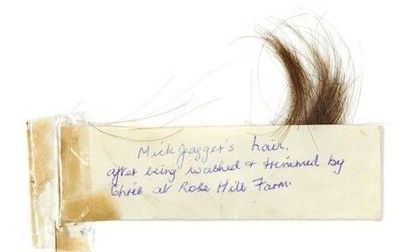 Mick Jagger's hair.
after being washed & trimmed by
Chris at Rose Hill Farm.